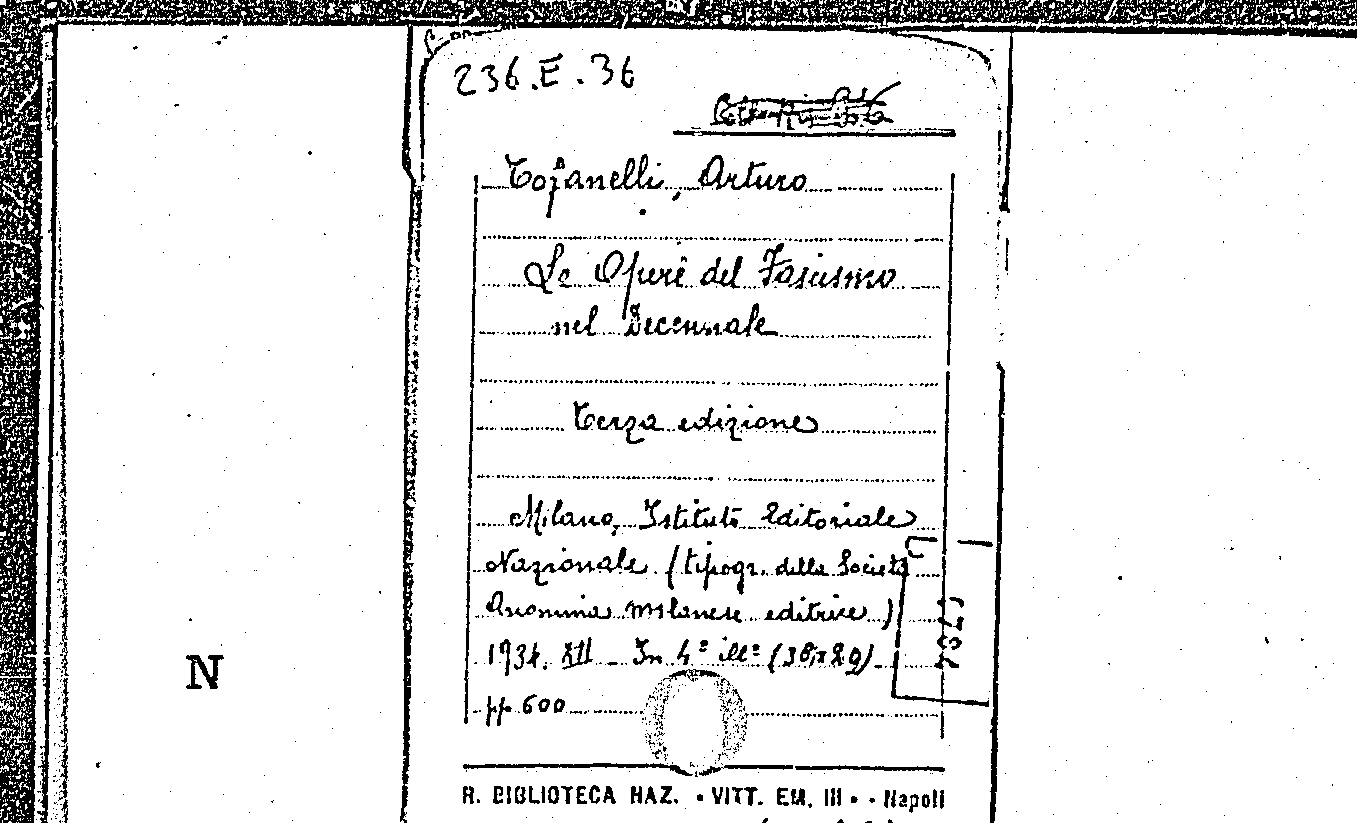 236.E.36
Tofanelli, Arturo
Le Opere del Fascismo
nel Decennale
Terza edizione
Milano, Istituto Editoriale
Nazionale (tipogr. della Società
Anonima milanese editrice)
1934. XII - In 4° ill°
pp. 600
N
R. BIBLIOTECA NAZ. • VITT. EM. III • - Napoli